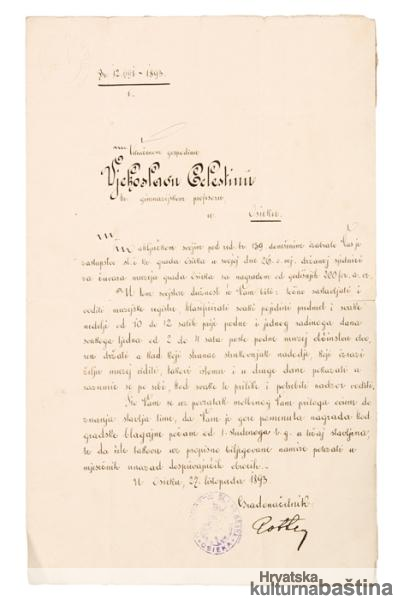 Br. 12.091 - 1893
1.
gospodinu
Vjekoslavu Celestinu
kr. gimnazijskom profesoru
u Osieku.
zaključkom svojim pod rd. br. 159 izabralo Vas je
zastupstvo sl. i kr. grada Osieka u svojoj dne 26. o. mj. držanoj sjednici
za čuvara muzeja grada Osieka sa nagradom od godišnjih 200 for. a. vr.
U tom svojstvu dužnost će Vam biti: točno sastavljati i
voditi muzejske registre, klasificirati svaki pojedini predmet i svake
nedelje od 10 do 12 satih prije podne i jednog radnoga dana
svakoga tjedna od 2 do 4 sata poslie podne muzej obćinstvu otvo-
ren držati a kad koji stranac nadodje, koji izrazi
želju muzej viditi, takovi istomu i u druge dane pokazati a
razumije se po sebi, kod svake te prilike i potrebiti nadzor voditi.
Što Vam se uz povratak molbenog Vam priloga ovim do
znanja stavlja time, da Vam je gore pomenuta nagrada kod
gradske blagajne počam od 1. studenoga t. g. u tečaj stavljena,
te da istu takovu uz propisno biljegovane namire pobirati u
mjesečnih unazad dospievajućih obrocih.
U Osieku, 27. listopada 1893
Gradonačelnik:
OSIEKA
Hrvatska
kulturnabaština